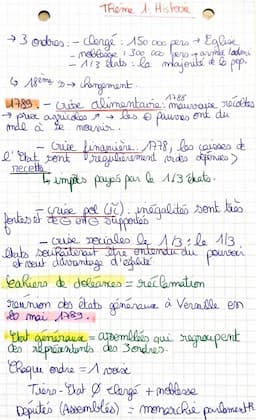 Thème 1: Histoire
→ 3 ordres: - clergé: 150 000 pers → Eglise
- noblesse: 300 000 pers →
- 1/3 états: la majorité de la pop.
↳ 18ème → changement.
1789. - crise alimentaire: 1788 mauvaise récoltes
→ prix agricoles ↗ → les pauvres ont du
mal à se nourrir.
- crise financière. 1778, les caisses de
l'Etat sont régulièrement vides dépenses >
recette
↳ impôts payés par le 1/3 états.
- crise pol, inégalités sont très
fortes et supportés
- crise sociales le 1/3: le 1/3
états souhaiterait être entendu du pouvoir
et veut davantage d'égalité
Cahiers de doléances = réclamation
réunion des états généraux à Versaille en
mai 1789.
Etat généraux = assemblées qui regroupent
des représentants des 3 ordres.
Chaque ordre = 1 voix
Tiers-Etat Ø clergé + noblesse
Députés (Assemblées) = monarchie